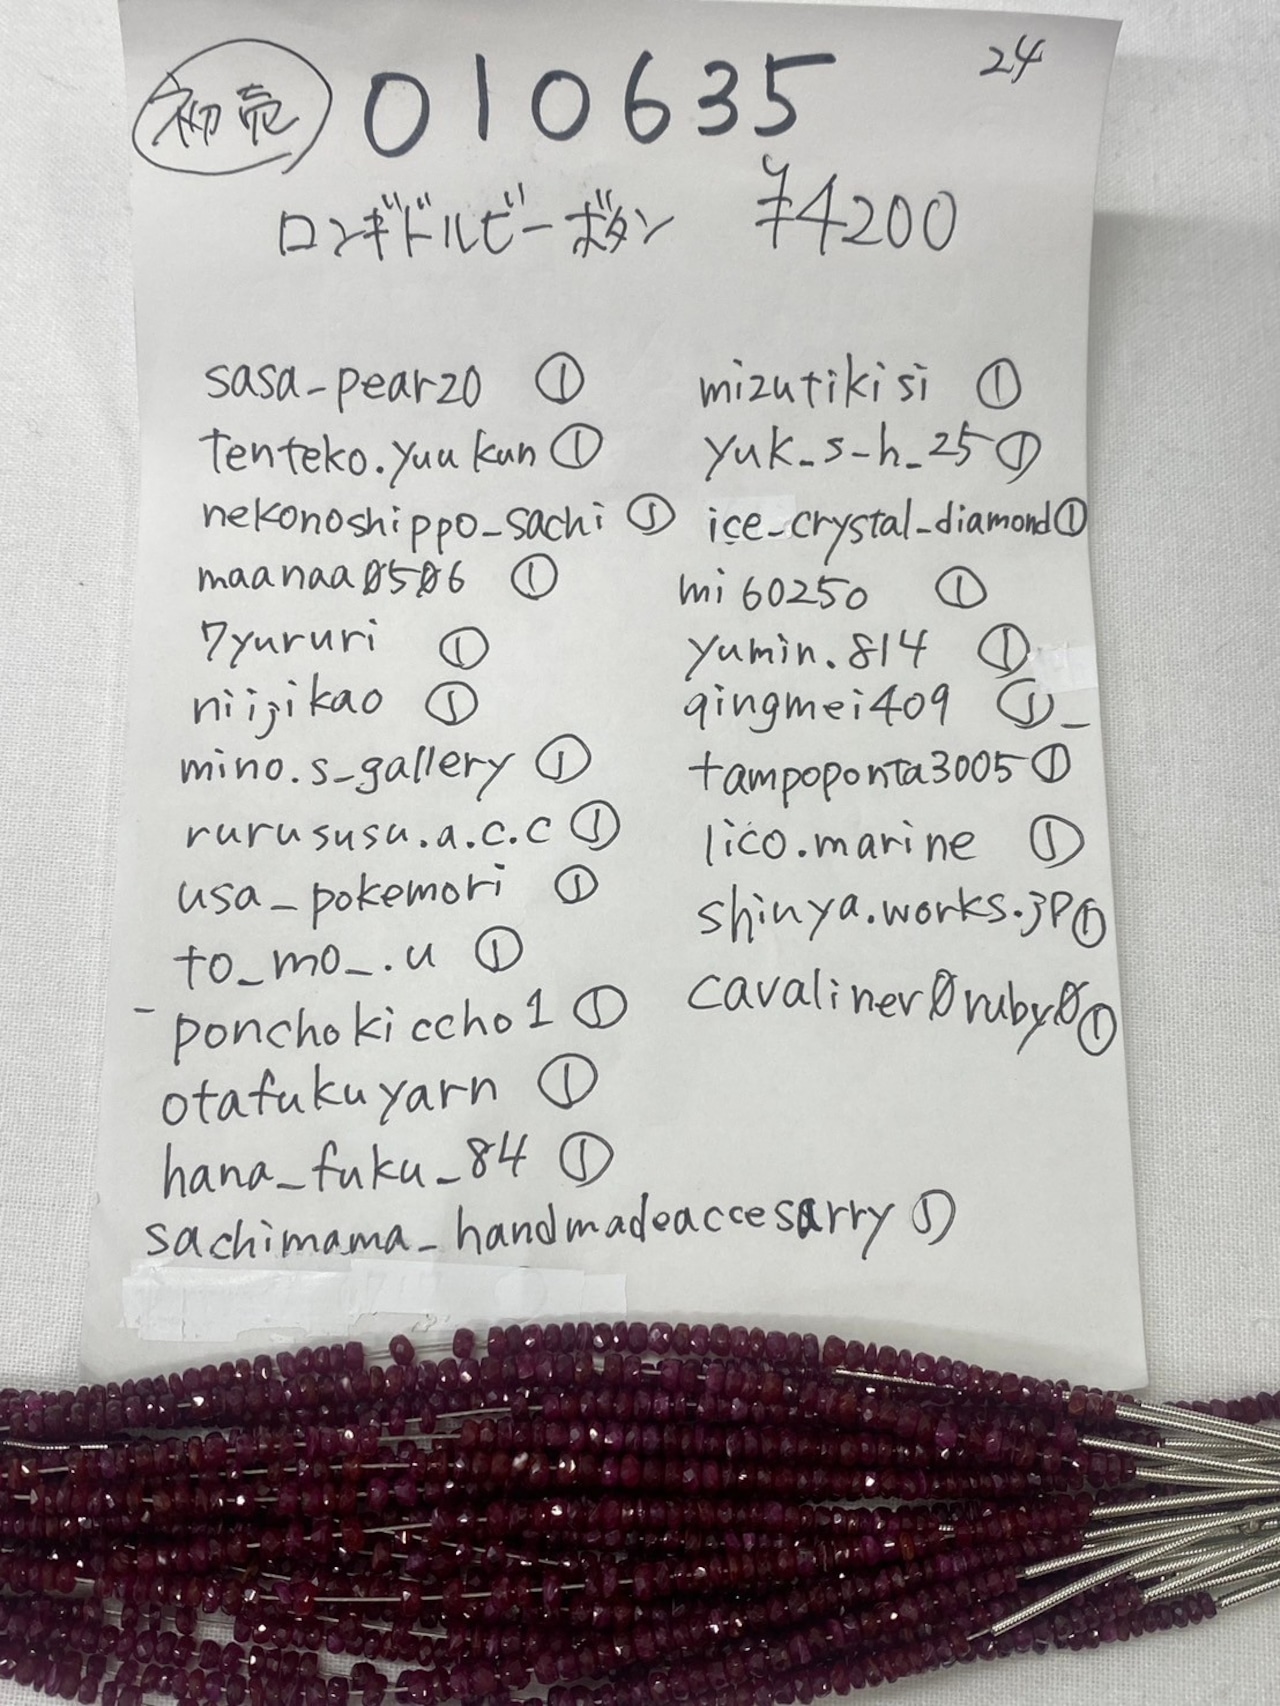 24
初売 010635
ロンギドルビーボタン ¥4200
sasa_pear20 ①
tenteko.yuukun ①
nekonoshippo_sachi ①
maanaa0506 ①
7yururi ①
niijikao ①
mino.s_gallery ①
rurususu.a.c.c ①
usa_pokemori ①
to_mo_.u ①
ponchokiccho1 ①
otafukuyarn ①
hana_fuku_84 ①
sachimama_handmadeaccesarry ①
mizutikisi ①
yuk_s_h_25 ①
ice_crystal_diamond ①
mi60250 ①
yumin.814 ①
qingmei409 ①
tampoponta3005 ①
lico.marine ①
shinya.works.jp ①
cavaliner0ruby0 ①